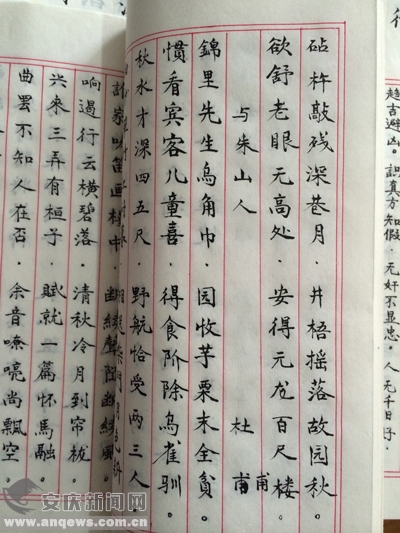 趋吉避凶。识真方知假。无奸不显忠。人无千日好。
砧杵敲残深巷月。井梧摇落故园秋。
欲舒老眼元高处。安得元龙百尺楼。
与朱山人 杜甫 甫
錦里先生烏角巾。园收芋栗未全貧。
惯看宾客儿童喜。得食阶除鸟雀驯。
秋水才深四五尺。野航恰受两三人。
家吹笛画楼中。断续声随断续风。
响遏行云横碧落。清秋冷月到帘栊。
兴来三弄有桓子。赋就一篇怀馬融。
曲罢不知人在否。余音嘹亮尚飘空。
安庆新闻网
www.anqews.com.cn